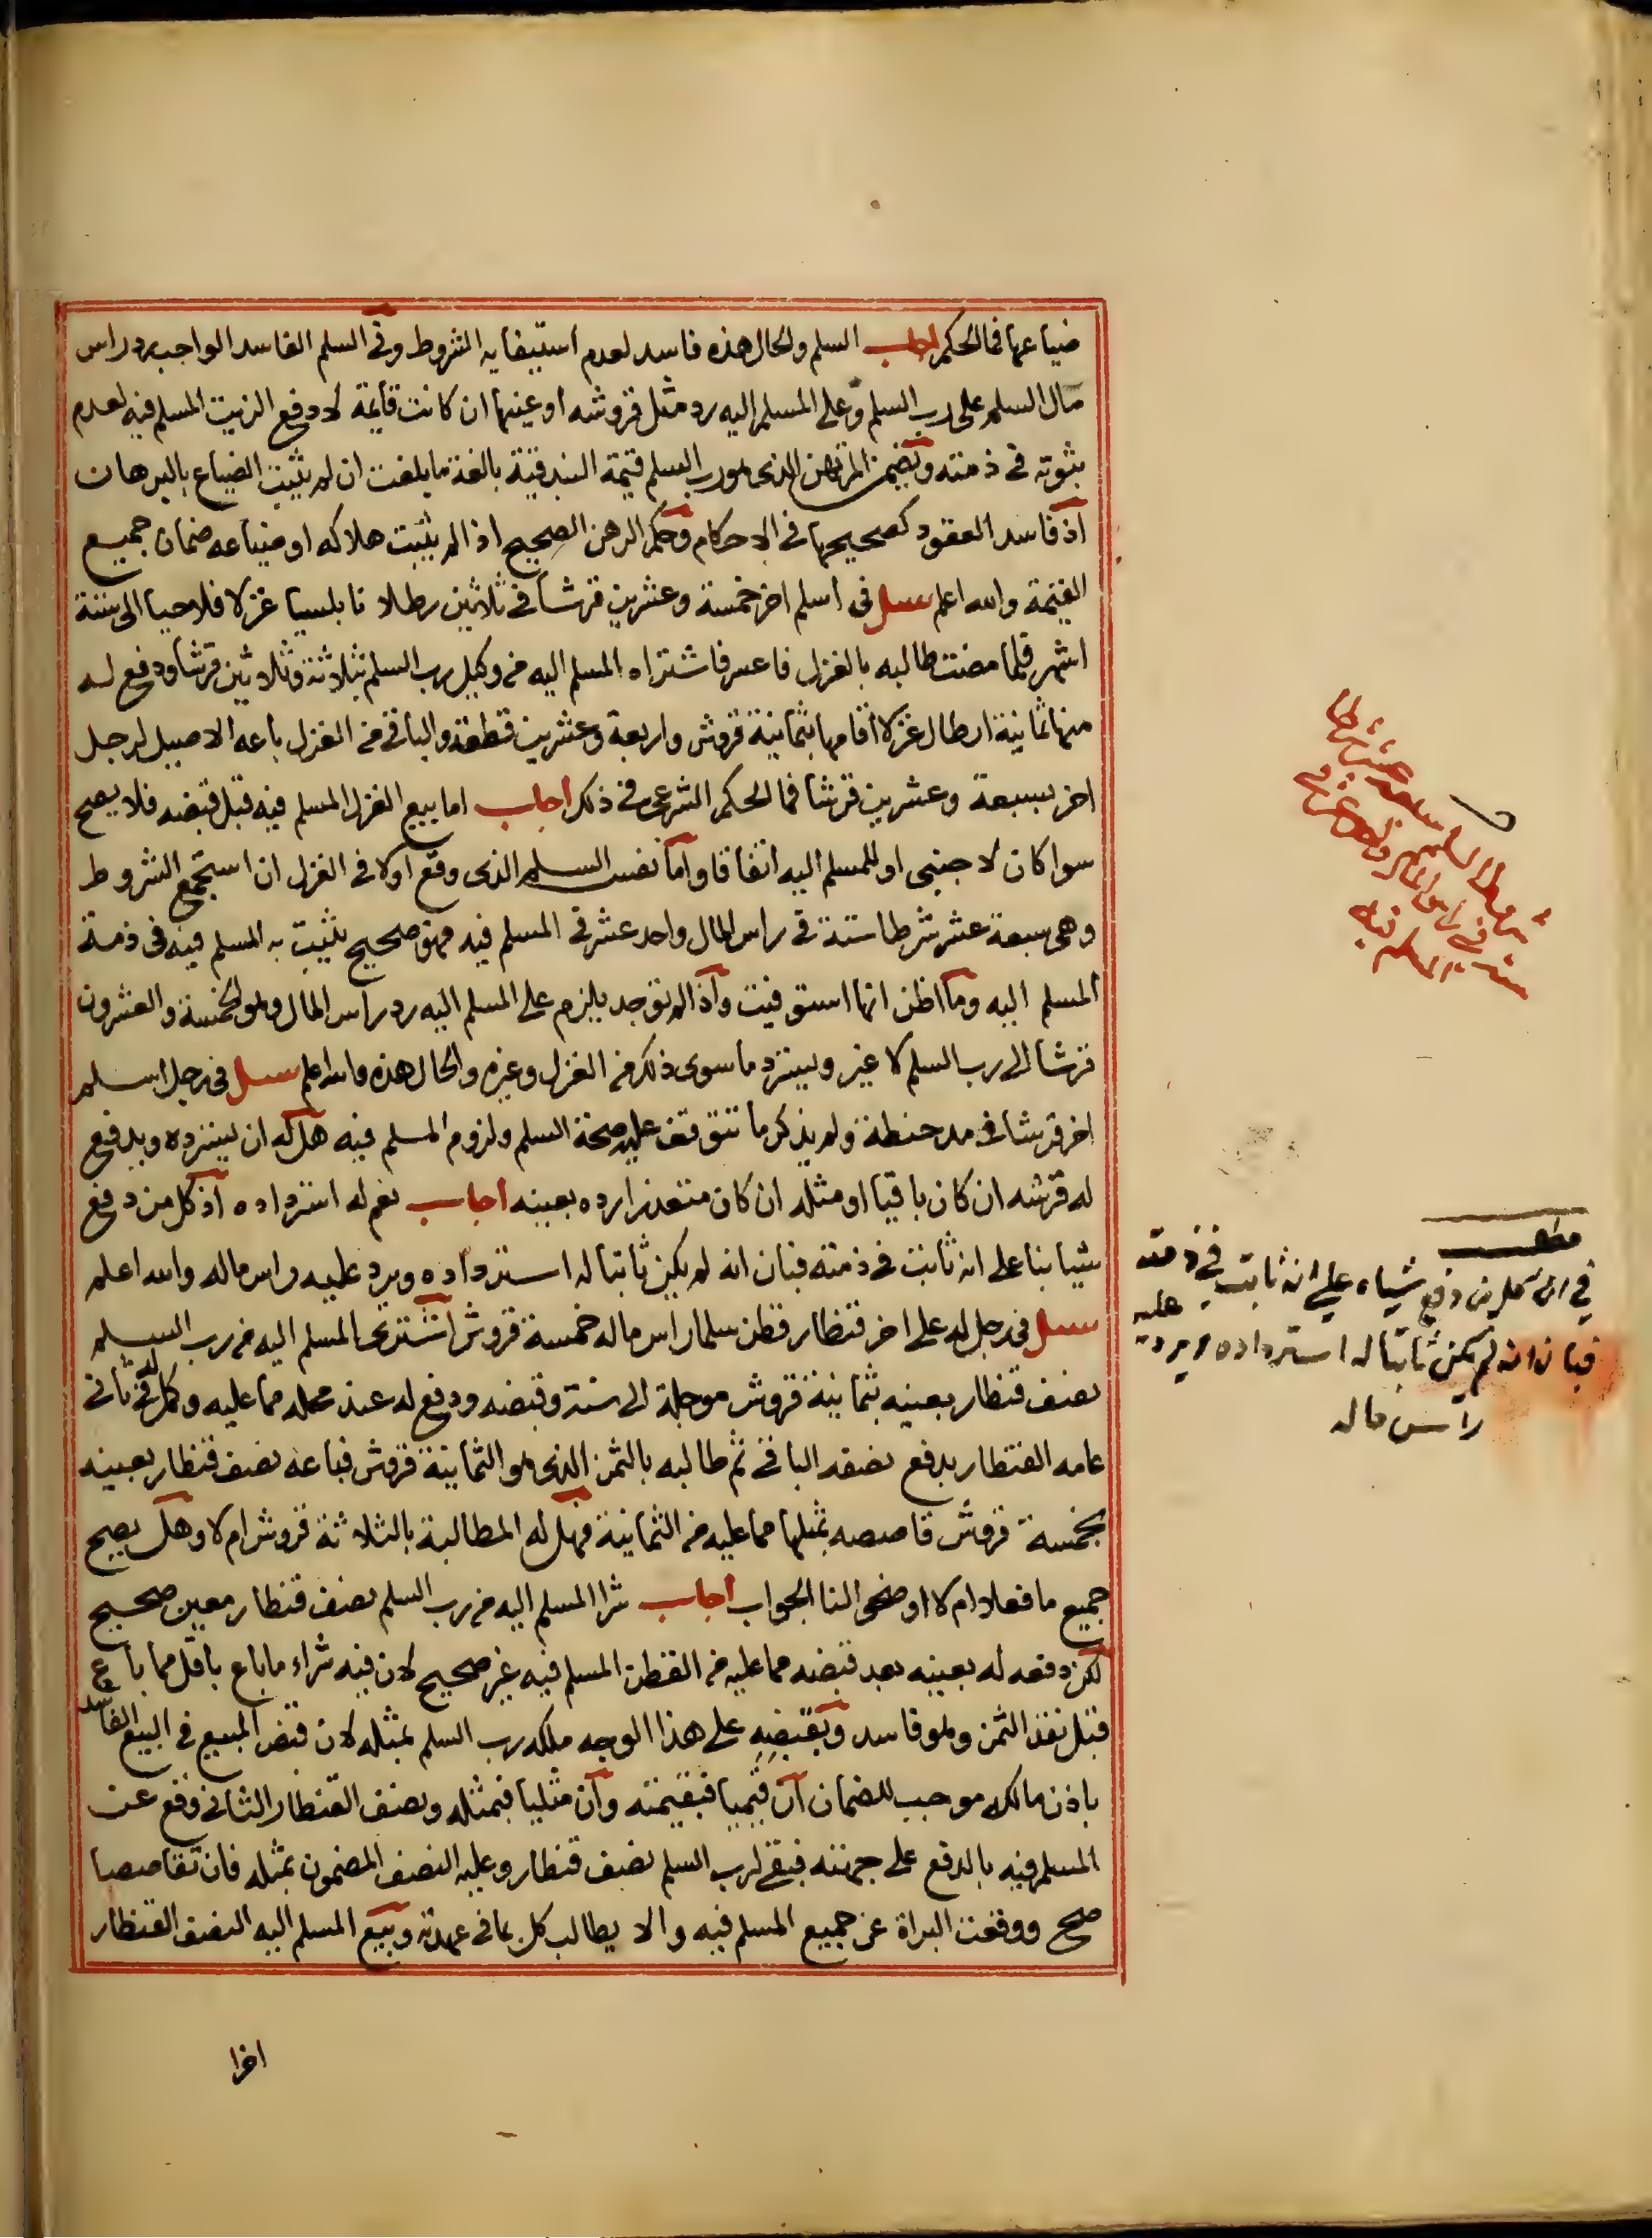 ضياعها فما الحكم اجاب السلم والحال هذه فاسد لعدم استيفايه الشروط وفى السلم الفاسد الواجب رد راس
مال السلم على رب السلم وعلى المسلم اليه رد مثل قروشه او عينها ان كانت قايمة لا دفع الزيت المسلم فيه لعدم
ثبوته فى ذمته ويضمن المرتهن الذى هو رب السلم قيمة البندقية بالغة ما بلغت ان لم يثبت الضياع بالبرهان
اذ فاسد العقود كصحيحها فى الاحكام وحكم الرهن الصحيح اذا لم يثبت هلاكه او ضياعه ضمان جميع
القيمة والله اعلم سيل فى اسلم اخر خمسة وعشرين قرشا فى ثلاثين رطلا نابلسيا غزلا فلاحيا الى ستة
اشهر فلما مضت طالبه بالغزل فاعسر فاشتراه المسلم اليه من وكيل رب السلم بثلاثة وثلاثين قرشا ودفع له
منها ثمانية ارطال غزلا اقامها بثمانية قروش واربعة وعشرين قطعة والباقى من الغزل باعه الاصيل لرجل
اخر بسبعة وعشرين قرشا فما الحكم الشرعى فى ذلك اجاب اما بيع الغزل المسلم فيه قبل قبضه فلا يصح
سوا كان لاجنبى او للمسلم اليه اتفاقا واما نفس السلم الذى وقع اولا فى الغزل ان استجمع الشروط
وهى سبعة عشر شرطا ستة فى راس المال واحد عشر فى المسلم فيه فهو صحيح يثبت به المسلم فيه فى ذمة
المسلم اليه وما اظن انها استوفيت واذا لم توجد يلزم على المسلم اليه رد راس المال وهو الخمسة والعشرون
قرشا الى رب السلم لا غير ويسترد ما سوى ذلك من الغزل وغيره والحال هذه والله اعلم سيل فى رجل اسلم
اخر قرشا فى مد حنطة ولم يذكر ما تتوقف عليه صحة السلم ولزوم المسلم فيه هل له ان يسترده ويدفع
له قرشه ان كان باقيا او مثله ان كان متعذرا رده بعينه اجاب نعم له استرداده اذ كل من دفع
شيا بنا على انه ثابت فى ذمته فبان انه لم يكن ثابتا له استرداده ويرد عليه راس ماله والله اعلم
سيل فى رجل له على اخر قنطار قطن سلما راس ماله خمسة قروش اشترى المسلم اليه من رب السلم
نصف قنطار بعينه بثمانية قروش موجلة الى سنة وقبضه ودفع له عند محله مما عليه وكمل له فى ثانى
عامه القنطار بدفع نصفه الباقى ثم طالبه بالثمن الذى هو الثمانية قروش فباعه نصف قنطار بعينه
بخمسة قروش قاصصه بمثلها مما عليه من الثمانية فهل له المطالبة بالثلاثة قروش ام لا وهل يصح
جميع ما فعلا ام لا اوضحوا لنا الجواب اجاب شرا المسلم اليه من رب السلم نصف قنطار معين صحيح
لكن دفعه له بعينه بعد قبضه مما عليه من القطن المسلم فيه غير صحيح لان فيه شراء ما باع باقل مما باع
قبل نقد الثمن وهو فاسد وبقبضه على هذا الوجه ملكه رب السلم بمثله لان قبض المبيع فى البيع الفاسد
باذن مالكه موجب للضمان ان قيميا فبقيمته وان مثليا فبمثله ونصف القنطار الثانى وقع عن
المسلم فيه بالدفع على جهته فبقى لرب السلم نصف قنطار وعليه النصف المضمون بمثله فان تقاصصا
صح ووقعت البراة عن جميع المسلم فيه والا يطالب كل بما فى عهدته وبيع المسلم اليه النصف القنطار
اخرا
شروط السلم سبعة عشر شرطا
ستة فى راس المال واحد عشر فى
المسلم فيه
مطلب
في ان كل من دفع شياء علي انه ثابت في ذمته
فبان انه لم يكن ثابتا له استرداده ويرد عليه
راس ماله